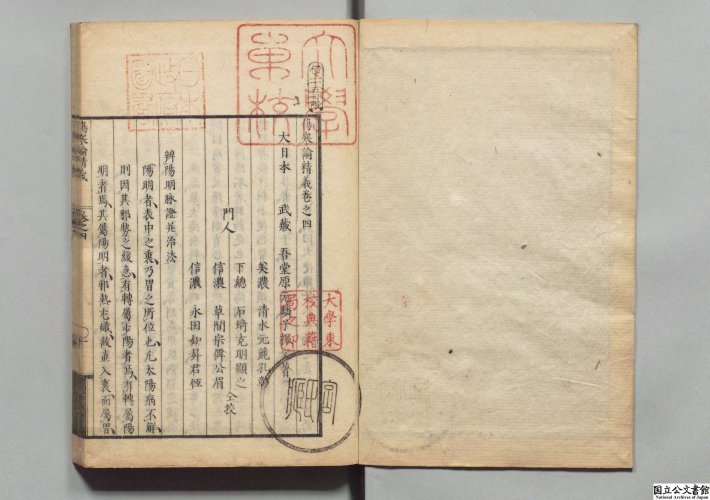 傷寒論精義巻之四
大日本 武藏 吾堂原元麟 著
門人
美濃 清水元
下總 石塚克明顯之
信濃 草間宗 公眉
信濃 永田如昇君恆
仝挍
辨陽明脉證并治法
陽明者表中之裏乃胃之所位也凡太陽病不解
則因其邪勢之緩急有轉屬少陽者焉有轉屬陽
明者焉其屬陽明者邪熱尤熾故直入裏而屬胃
傷寒論精義
卷之四
大學東校
大學東校典籍局之印
日本政府圖書
国立公文書館
National Archives of Japan